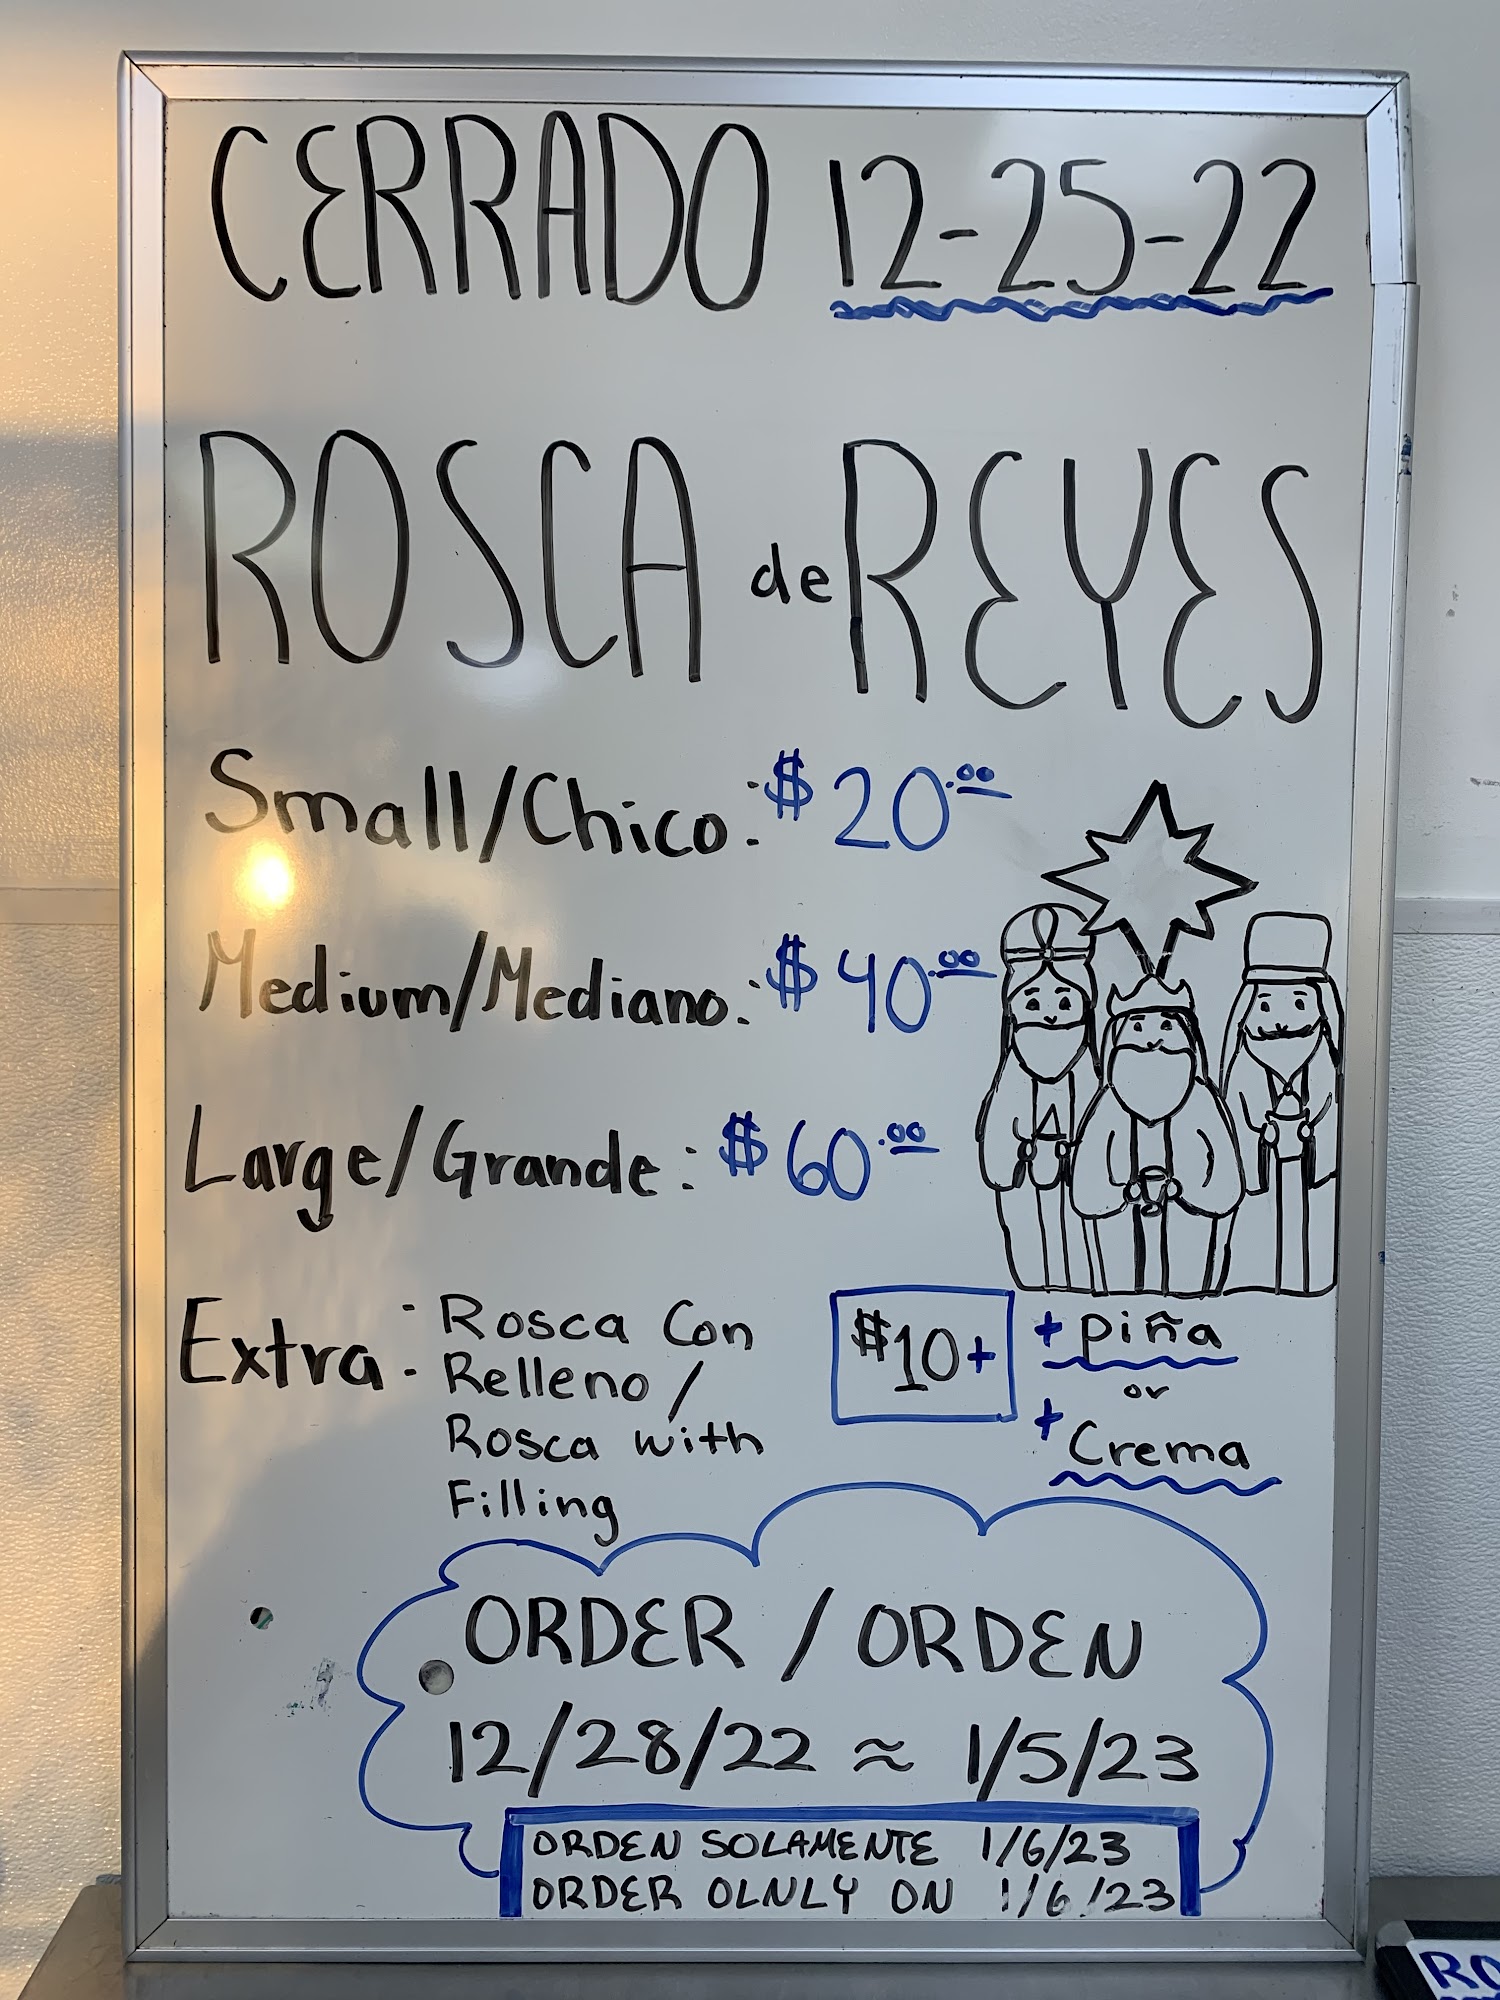 CERRADO 12-25-22
ROSCA de REYES
Small/Chico: $20.00
Medium/Mediano: $40.00
Large/Grande: $60.00
Extra: Rosca Con
Relleno /
Rosca with
Filling
$10+
+ piña
or
+ Crema
ORDER / ORDEN
12/28/22 ≈ 1/5/23
ORDEN SOLAMENTE 1/6/23
ORDER OLNLY ON 1/6/23
RO